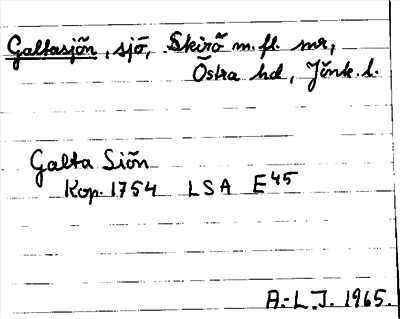 Galtasjön, sjö, Skirö m. fl. snr,
Östra hd, Jönk. l.
Galta Siön
Kop. 1754 LSA E45
A.-L.J. 1965.